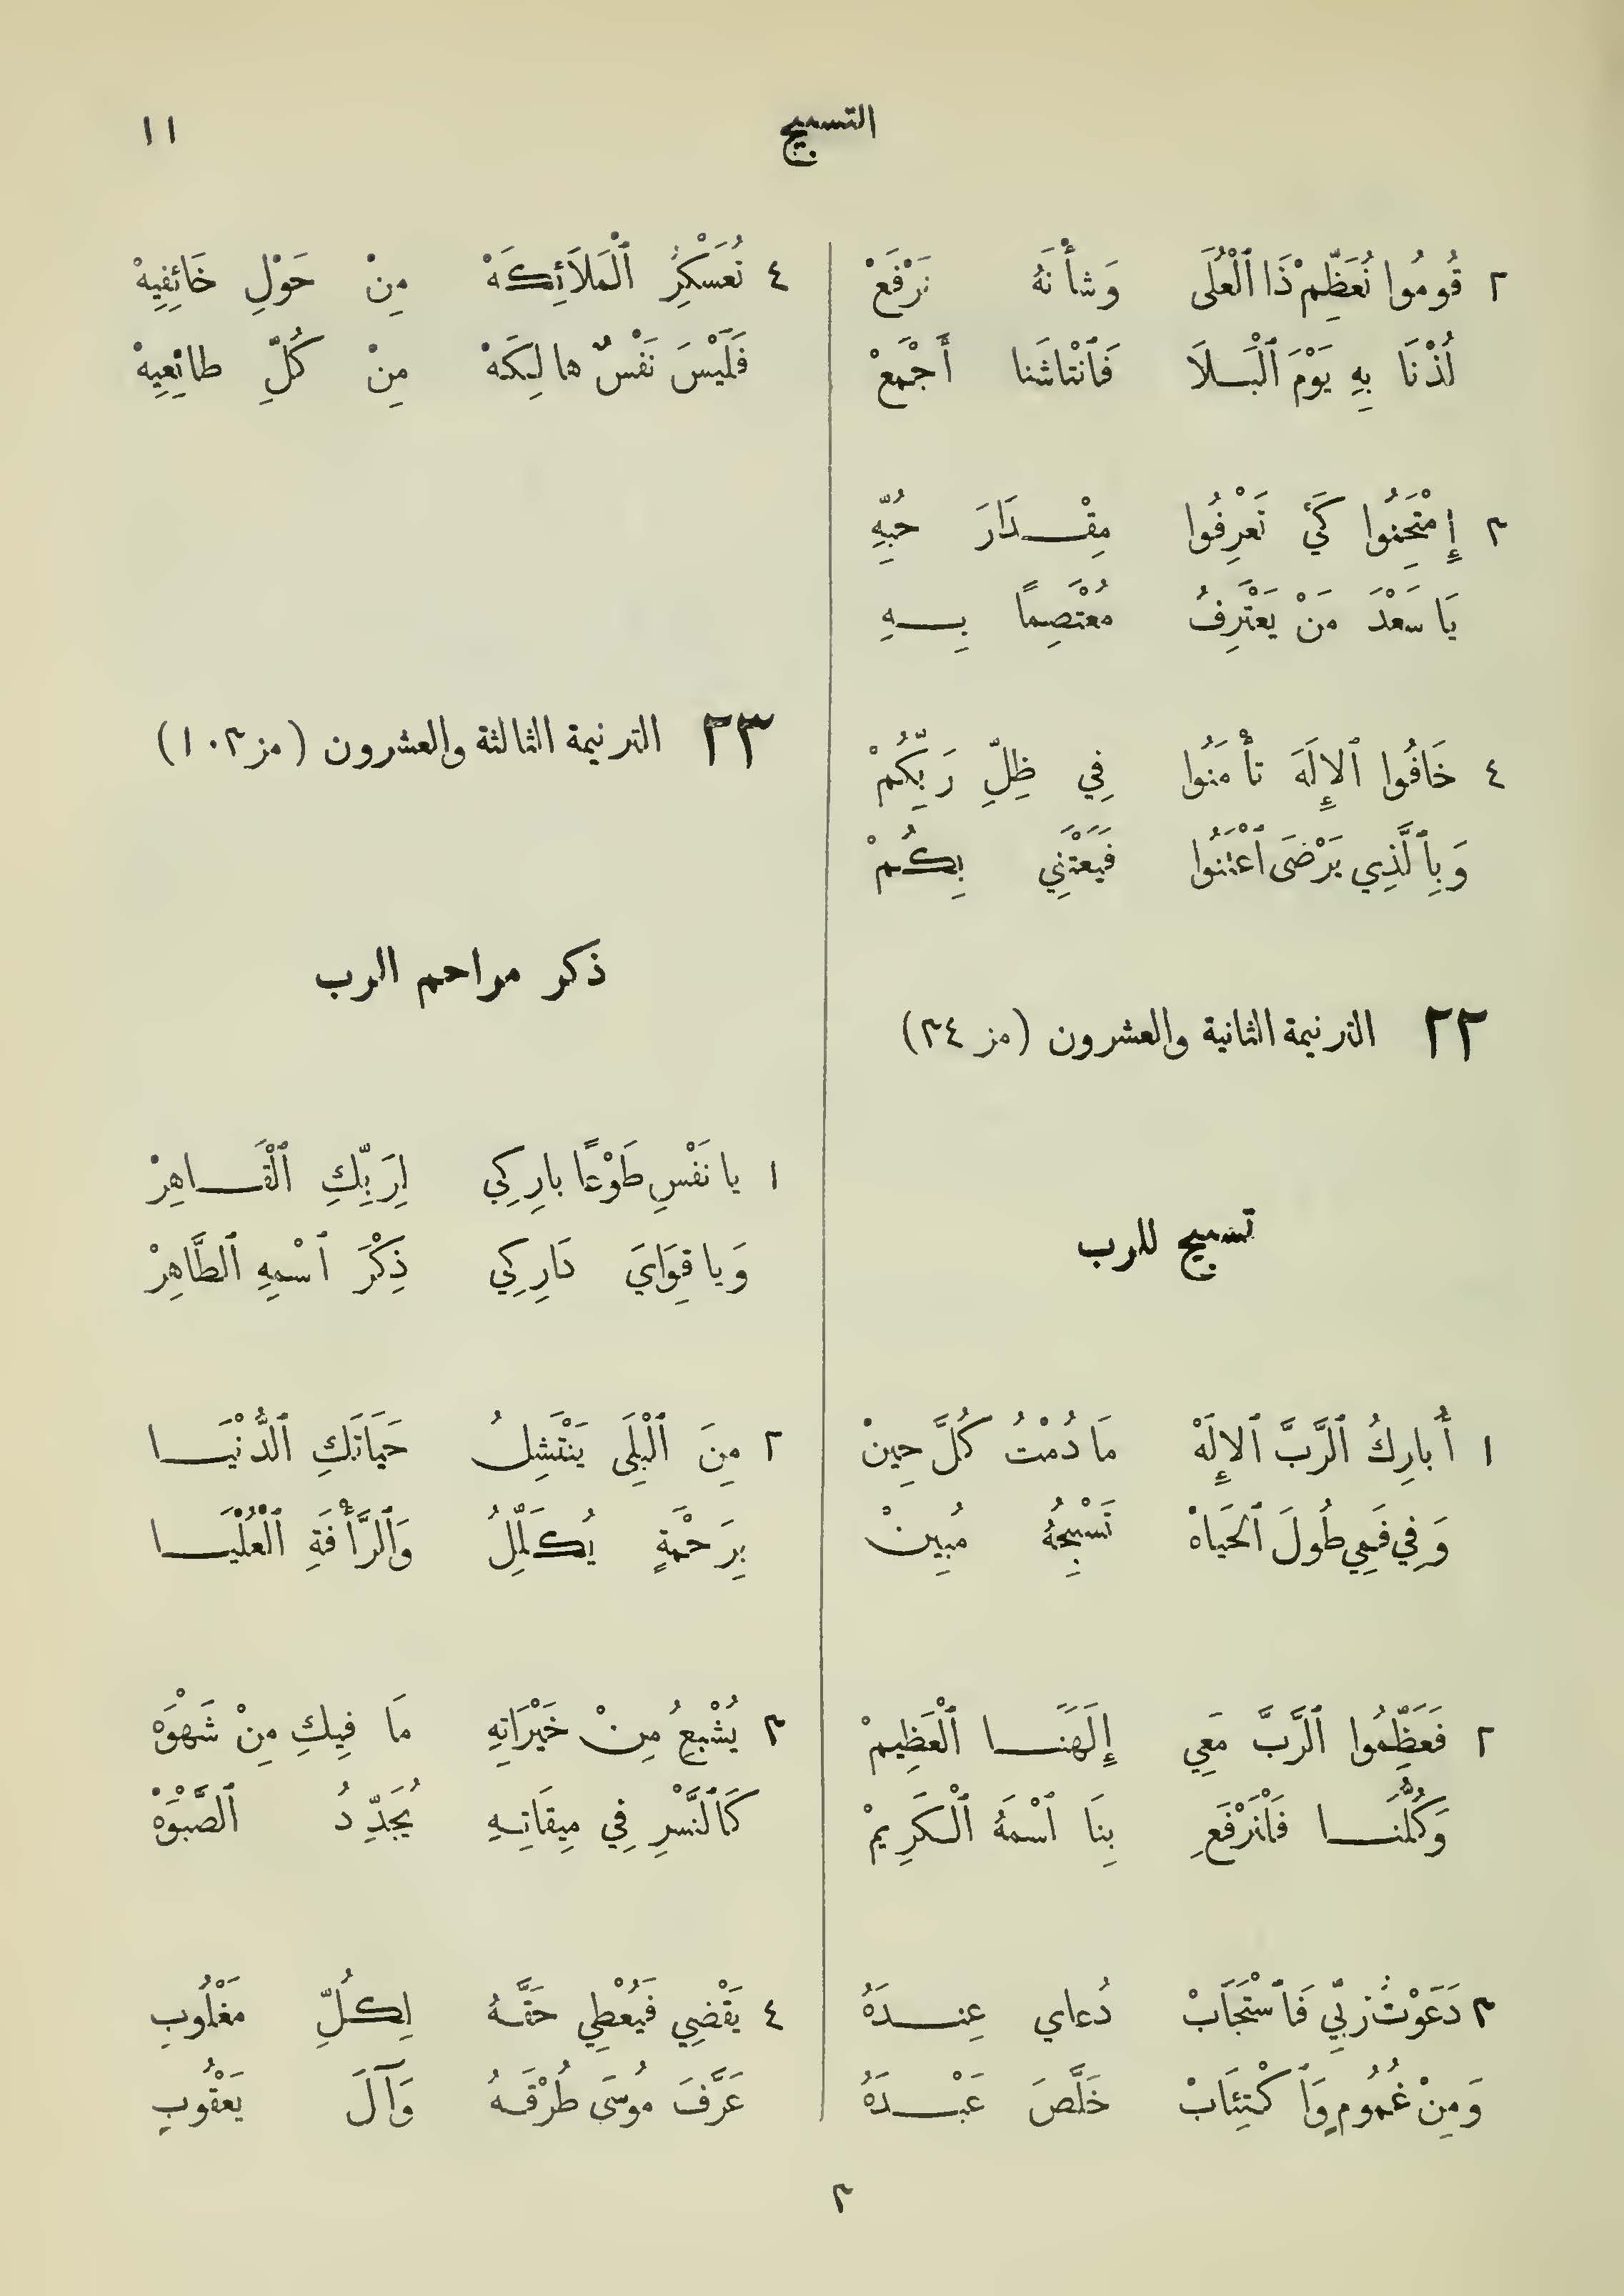 التسبيح
١١
٢ قُومُوا نُعَظِّمْ ذَا ٱلْعُلَى وَشأْنَهُ نَرْفَعْ
لُذْنَا بِهِ يَوْمَ ٱلْبَلَا فَٱنْتاشَنا أَجْمَعْ
٣ إِمْتَحِنُوا كَيْ تَعْرِفُوا مِقْدَارَ حُبِّهِ
يَا سَعْدَ مَنْ يَعْتَرِفُ مُعْتَصِمًا بِهِ
٤ خَافُوا ٱلإِلَهَ تأْمَنُوا فِي ظِلِّ رَبِّكُمْ
وَبِٱلَّذِي يَرْضَى ٱعْتَنُوا فَيَعْتَنِي بِكُمْ
٢٢ الترنيمة الثانية والعشرون (مز ٣٤)
تسبيح للرب
١ أُبارِكُ ٱلرَّبَّ ٱلإِلَهْ مَا دُمْتُ كُلَّ حِينْ
وَفِي فَمِي طُولَ ٱلحَيَاهْ تَسْبِيحُهُ مُبِينْ
٢ فَعَظِّمُوا ٱلرَّبَّ مَعِي إِلَهَنَا ٱلْعَظِيمْ
وَكُلُّنَا فَلْنَرْفَعِ بِنَا ٱسْمَهُ ٱلْكَرِيمْ
٣ دَعَوْتُ رَبِّي فَٱسْتَجَابْ دُعاي عِندَهُ
وَمِنْ غُمُومٍ وَٱكْتِئَابْ خَلَّصَ عَبْدَهُ
٤ تُعَسْكِرُ ٱلْمَلاَئِكَهْ مِنْ حَوْلِ خَائِفِيهْ
فَلَيْسَ نَفْسٌ هالِكَهْ مِنْ كُلِّ طائِعِيهْ
٢٣ الترنيمة الثالثة والعشرون (مز ١٠٣)
ذكر مراحم الرب
١ يا نَفْسِ طَوْعًا بارِكِي لِرَبِّكِ ٱلْقَاهِرْ
وَيا قِوَايَ دَارِكِي ذِكْرَ ٱسْمِهِ ٱلطَّاهِرْ
٢ مِنَ ٱلْبِلَى يَنْتَشِلُ حَيَاتَكِ ٱلدُّنْيَا
بِرَحْمَةٍ يُكَلِّلُ وَٱلرَّأْفَةِ ٱلْعُلْيَا
٣ يُشْبِعُ مِنْ خَيْرَاتِهِ مَا فِيكِ مِنْ شَهْوَهْ
كَٱلنَّسْرِ فِي مِيقَاتِهِ يُجَدِّدُ ٱلصَّبْوَهْ
٤ يَقْضِي فَيُعْطِي حَقَّهُ لِكُلِّ مَغْلُوبِ
عَرَّفَ مُوسَى طُرْقَهُ وَآلَ يَعْقُوبِ
٣